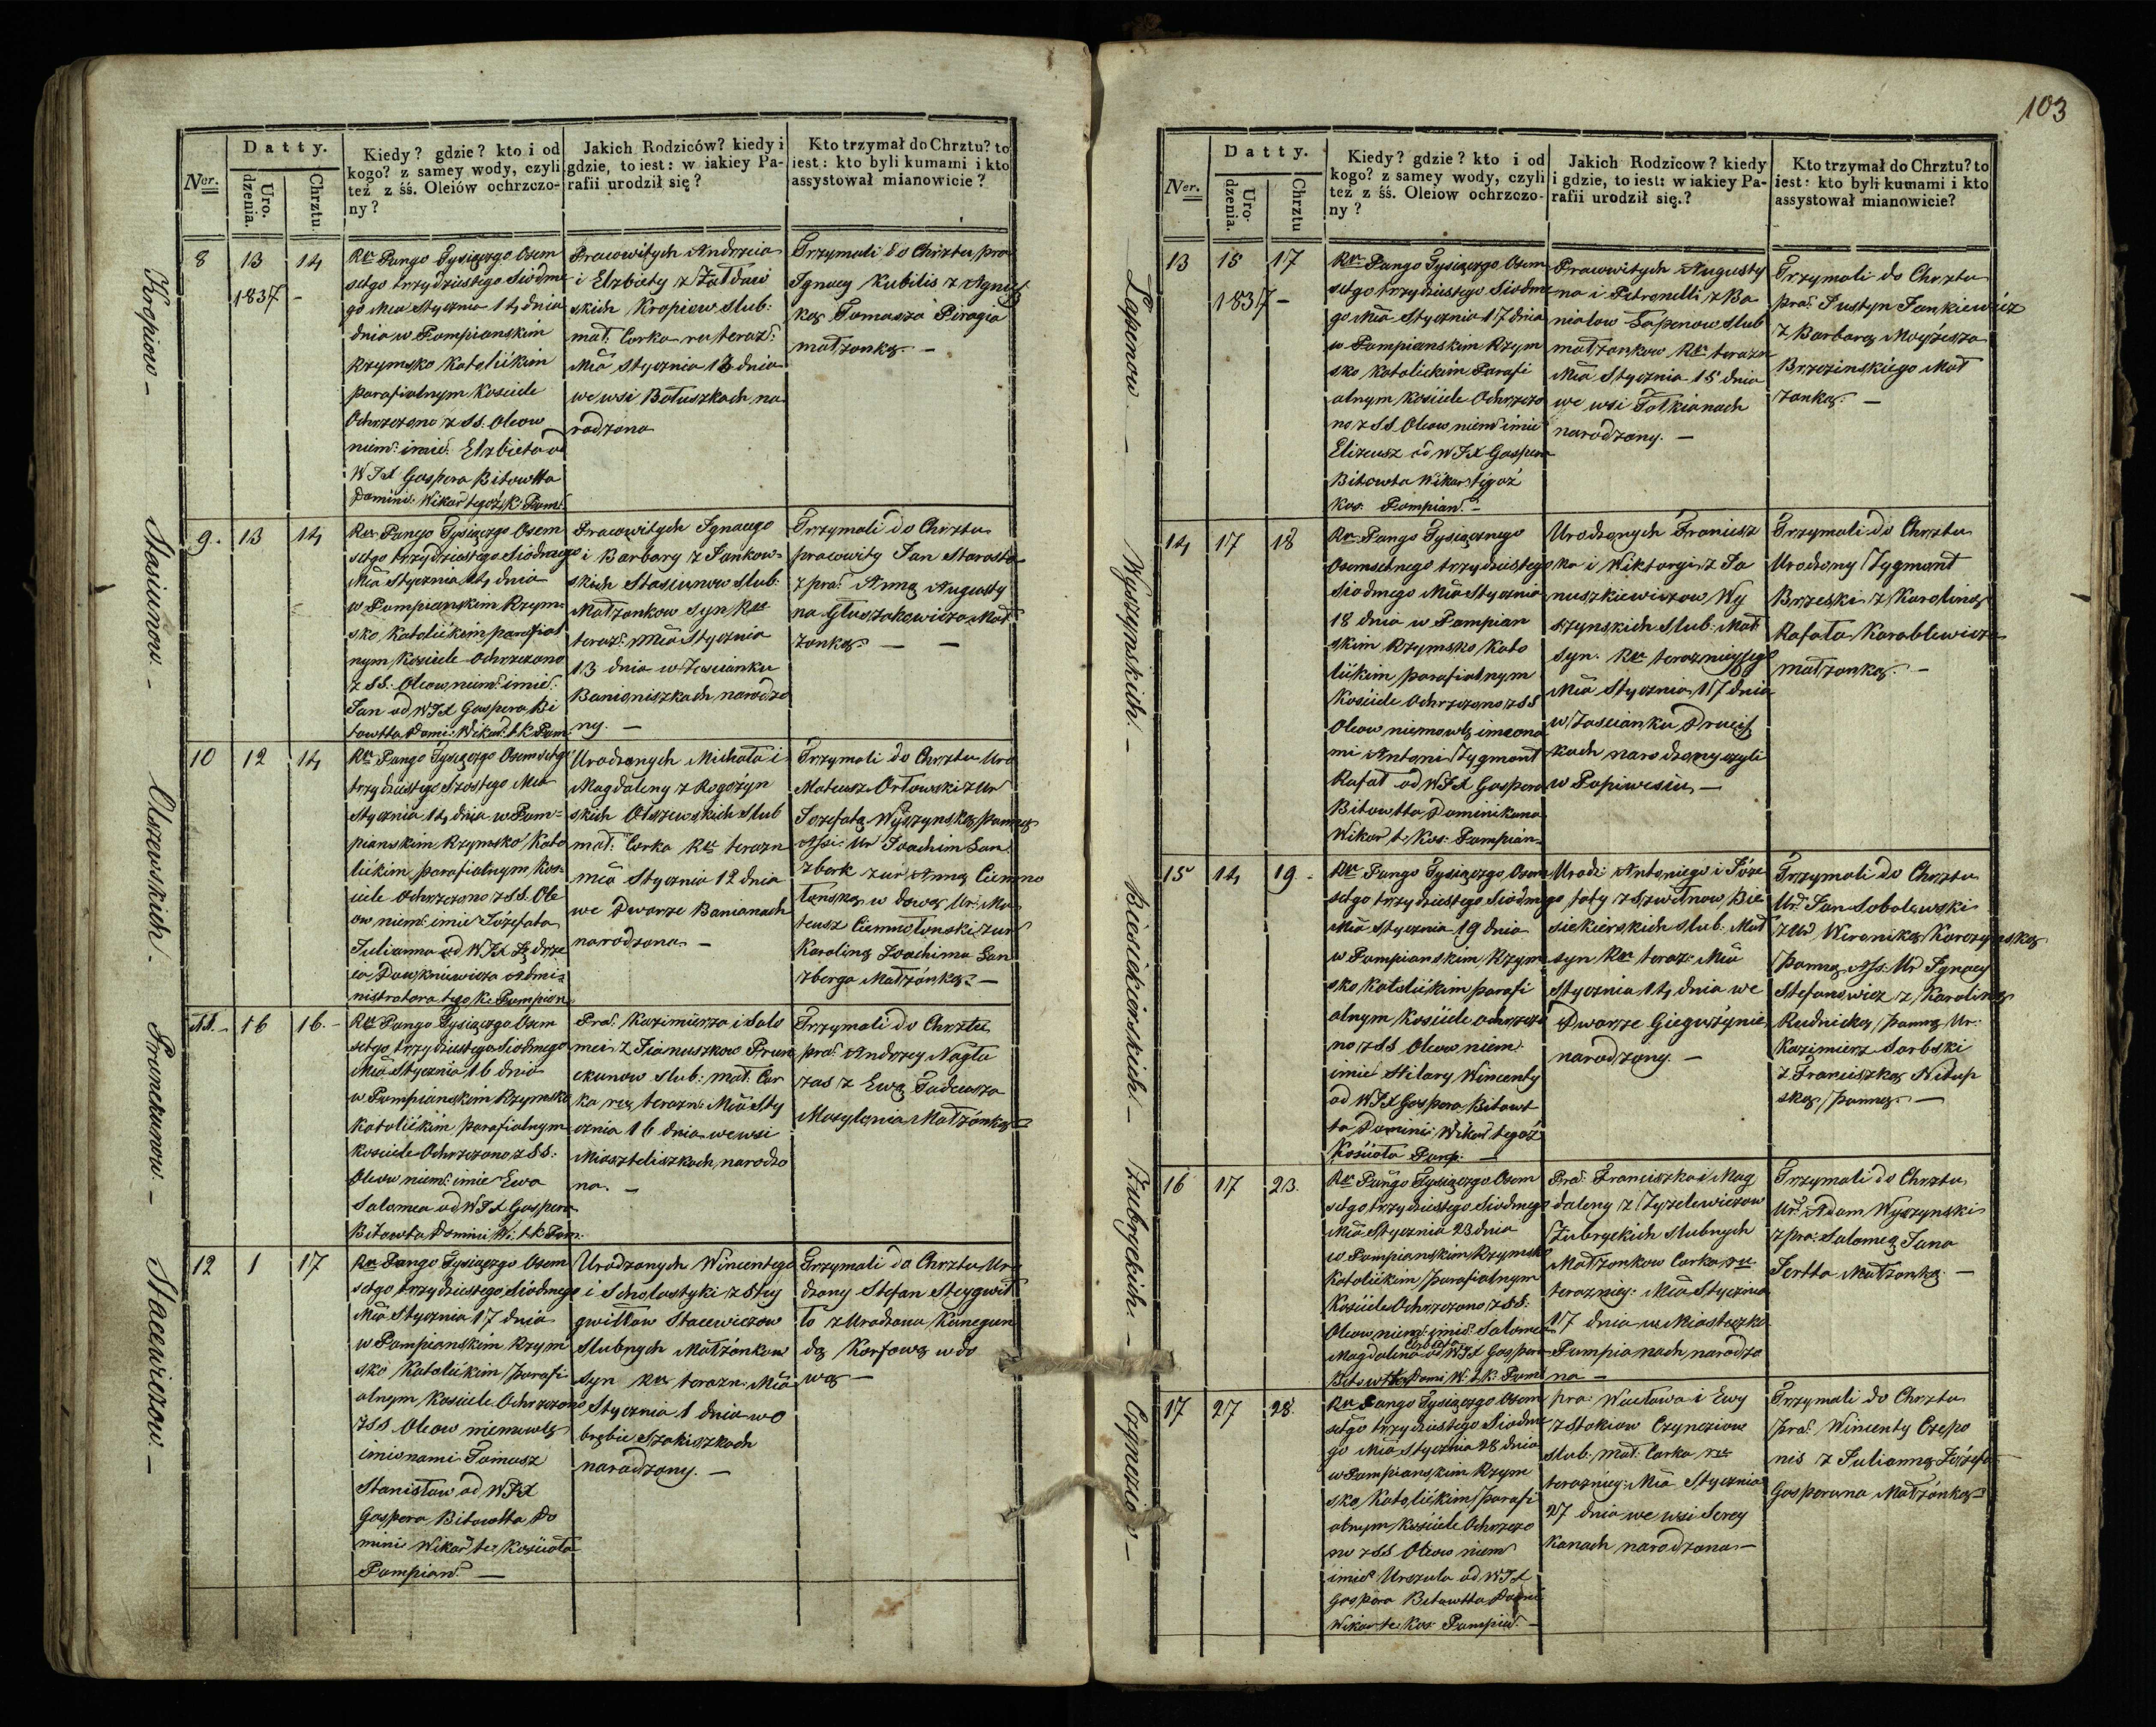 103
Datty.
Ner.
Uro.
dzenia.
Chrztu.
Kiedy? gdzie? kto i od
kogo? z samey wody, czyli
też z śś. Oleiów ochrzczo-
ny?
Jakich Rodziców? kiedy i
gdzie, to iest: w iakiey Pa-
rafii urodził się?
Kto trzymał do Chrztu? to
iest: kto byli kumami i kto
assystował mianowicie?
Kropiow -
8
13
1837
14
-
Rku Pango Tysiączgo Osem
setgo trzydziestego Siódme
go Mca Stycznia 14 dnia
dnia w Pompianskim
Rzymsko Katolickim
parafialnym Kosciele
Ochrzczono z SS. Oleow
niem: imie: Elzbieta od
WJX Gaspera Bitowtta
Domini: Wikar tegoż K: Pom:
Pracowitych Andrzeia
i Elzbiety z Zołdow
skich Kropiow Slub:
mał: Corka ru teraz:
Mca Stycznia 13 dnia
we wsi Botuszkach na
rodzona
Trzymali do Chrztu, pra
Ignacy Kubilis z Agnies
ką Tomasza Piragia
małzonką. -
Stasiunow. -
9.
13
14
Rku Pango Tysiączgo Osem
setgo trzydziestego Siodmego
Mca Stycznia 14 dnia
w Pompianskim Rzym
sko Katolickim parafial
nym Kosciele Ochrzczono
z SS: Oleow niem: imie:
Jan od WJX Gaspera Bi
towtta Domi: Wikar: t. K. Pom:
Pracowitych Ignacego
i Barbary z Jankow
skich Stasiunow slub:
Małzonkow syn Rku
teraz: Mca Stycznia
13 dnia w Zascianku
Banioniszkach narodzo
ny. -
Trzymali do Chrztu
pracowity Jan Starosta
z pra: Anną Augusty
na Głuszakowicza Mał
zonką. - -
Olszewskich. -
10
12
14
Rku Pango Tysiączgo Osemsetgo
trzydziestego Szostego Mca
Stycznia 14 dnia w Pom=
pianskim Rzymsko Kato
lickim parafialnym Kos
ciele Ochrzczono z SS. Ole
ow niem: imie Józefata
Julianna od WJX Jędrze
ia Dauknie wicza admi=
nistratora tego K: Pompian
Urodzonych Michała i
Magdaleny z Rogożyn
skich Olszewskich Slub
mał: Corka Rku terazn
mca Stycznia 12 dnia
we Dworze Banianach
narodzona. -
Trzymali do Chrztu Uro
Mateusz Orłowski z Ur
Jozefatą Wyszynską panną
Assi: Ur Joachim San
zberk z ur: Anną Ciemno
łonską wdową Ur: Ma
teusz Ciemnołonski z ur
Karoliną Joachima San
zberga Małzonką. -
Pranckunow. -
11.
16
16. -
Rku Pango Tysiączgo Osem
setgo trzydziestego Siodmego
Mca Stycznia 16 dnia
w Pompianskim Rzymsko
Katolickim parafialnym
Kosciele Ochrzczono z SS:
Oleow niem: imie Ewa
Salomea od WJX Gaspera
Bitowtta Domini Wi: t. K Pom:
Pra: Kazimierza i Salo
mei z Jianuszkow Pran
ckunow slub: mał: Cor
ka rku terazn: Mca Sty
cznia 16 dnia we wsi
Miasteliszkach narodzo
na. -
Trzymali do Chrztu
pra: Andrzey Nagla
zas z Ewą Tadeusza
Mazylania Małzonką -
Stacewiczow. -
12
1
17
Rku Pango Tysiączgo Osem
setgo trzydziestego Siodmego
Mca Stycznia 17 dnia
w Pompianskim Rzym
sko Katolickim parafi
alnym Kosciele Ochrzczono
z SS Oleow niemowlę
imionami Tomasz
Stanisław od WJX
Gaspera Bitowtta Do
mini Wikar te: Kosciała
Pompian: -
Urodzonych Wincentego
i Scholastyki z Stey
gwiłłow Stacewiczow
Slubnych Małzonkow
syn Rku terazn: Mca
Stycznia 1 dnia w O
brębie Szakiszkach
narodzony. -
Trzymali do Chrztu Uro
dzony Stefan Steygwił
ło z Urodzona Kunegun
dą Korfową wdo
wą -
Datty.
Ner.
Uro-
dzenia.
Chrztu
Kiedy? gdzie? kto i od
kogo? z samey wody, czyli
też z śś. Oleiow ochrzczo-
ny?
Jakich Rodzicow? kiedy
i gdzie, to iest: w iakiey Pa-
rafii urodził się.?
Kto trzymał do Chrztu? to
iest: kto byli kumami i kto
assystował mianowicie?
Łapenow -
13
15
1837 -
17
Rku Pango Tysiączgo Osem
setgo trzydziestego Siodme
go Mca Stycznia 17 dnia
w Pompianskim Rzym
sko Katolickim Parafi
alnym Kosciele Ochrzczo
no z SS Oleow niem imie
Elizeusz od WJX Gaspera
Bitowta Wikar tegoż
Kos: Pompian: -
Pracowitych Augusty
na i Petronelli z Ba
nialow Łapenow Slub
małzonkow Rku terazn
Mca Stycznia 15 dnia
we wsi Tołkianach
narodzony. -
Trzymali do Chrztu
pra: Justyn Jankiewicz
z Barbarą Moyżesza
Brzezinskiego Mał
zonką. -
Wyszynskich. -
14
17
18
Rku Pango Tysiącznego
Osemsetnego trzydziestego
Siodmego Mca Stycznia
18 dnia w Pompian
skim Rzymsko Kato
lickim parafialnym
Kosciele Ochrzczono z SS
Oleow niemowlę imiona
mi Antoni Zygmont
Rafał od WJX Gaspera
Bitowtta Dominikana
Wikar te Kos: Pompian
Urodzonych Francisz
ka i Wiktoryi z Ja
nuszkiewiczow Wy
szynskich Slub: Mał:
syn. Rku teraznieyszego
Mca Stycznia 17 dnia
w Zascianku Drucis
kach narodzony czyli
w Papiwesiu -
Trzymali do Chrztu
Urodzony Zygmont
Brzeski z Karoliną
Rafała Karablewicza
małzonką. -
Biesiekierskich. -
15
14
19.
Rku Pango Tysiączgo Osem
setgo trzydziestego Siodmego
Mca Stycznia 19 dnia
w Pompianskim Rzym
sko Katolickim parafi
alnym Kosciele ochrzczo
no z SS Oleow niem:
imie Hilary Wincenty
od WJX Gaspera Bitowt
ta Domini: Wikar tegoż
Kosciała Pomp: -
Urodz: Antoniego i Józe
faty z Szwoynow Bie
siekierskich slub: Mał
syn Rku teraz: Mca
Stycznia 14 dnia we
Dworze Gieguzynie
narodzony. -
Trzymali do Chrztu
Ur: Jan Sobolewski
z Ur Weroniką Korczynską
panną Ass: Ur Ignacy
Stefanowicz z Karoliną
Rudnicką panną Ur:
Kazimierz Sarbski
z Franciszką Nidup
ską panną. -
Zubryckich. -
16
17
23.
Rku Pango Tysiączgo Osem
setgo trzydziestego Siodmego
Mca Stycznia 23 dnia
w Pompianskim Rzymsko
Katolickim parafialnym
Kosciele Ochrzczono z SS:
Oleow niem: imie: Salomea
Magdalena od WJX Gaspera
Bitowtta Domi W. t. K. Pom:
Pra: Franciszka i Mag
daleny z Zyzelewiczow
Zubryckich slubnych
Małzonkow Corka rku
terazniey: Mca Stycznia
17 dnia w Miasteczko
Pompianach narodzo
na -
Trzymali do Chrztu
Ur: Adam Wyszynski
z pra: Salomeą Jana
Jertta Małzonką. -
Czynczio -
17
27
28.
Rku Pango Tysiączgo Osem
setgo trzydziestego Siodme
go Mca Stycznia 28 dnia
w Pompianskim Rzym
sko Katolickim parafi
alnym Kosciele Ochrzczo
no z SS Oleow niem
imie Urszula od WJX
Gaspera Bitowtta Domi
Wikar te: Kos: Pompia: -
pra: Wacława i Ewy
z Stokiow Czyncziow
slub: mał: Corka rku
terazniey: Mca Stycznia
27 dnia we wsi Serey
kanach narodzona -
Trzymali do Chrztu
pra: Wincenty Czepo
nis z Julianną Józefa
Gasparuna Małzonką -